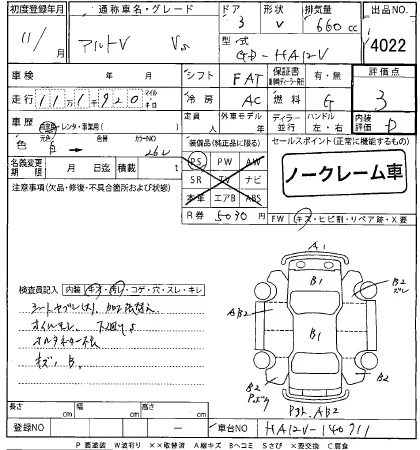 初度登録年月 通称車名・グレード ドア 形状 排気量 出品NO.
11/ 月 アルトV Vs 3 V 660 cc 4022
型式 GD-HA12V
車検 年 月 シフト FAT 保証書 有・無 評価点
走行 11万1千920 マイル キロ 冷房 AC 燃料 G 3
車歴 自家用・レンタ・事業用( ) 定員 人 外車モデル 年 ディーラー 並行 ハンドル 左・右 内装評価 D
色 元色 白 → 色替 カラーNO 26U 装備品(純正品に限る) セールスポイント(正常に機能するもの)
名義変更期限 月 日迄 積載 t PS PW AW
注意事項(欠品・修復・不具合箇所および状態) SR TV ナビ ノークレーム車
本革 エアB ABS
R券 5030 FW キズ・ヒビ割・リペア跡・X要
A1
検査員記入 内装 キズ・汚れ・コゲ・穴・スレ・キレ
B1 B2
AB2
オイルモレ 下廻りサビ
B1
キズ、B
B2 B2
長さ cm 幅 cm 高さ cm AB2
登録NO 車台NO HA12V-140711
P要塗装 W波有り ××取替済 A線キズ Bヘコミ Sさび ×要交換 C腐食